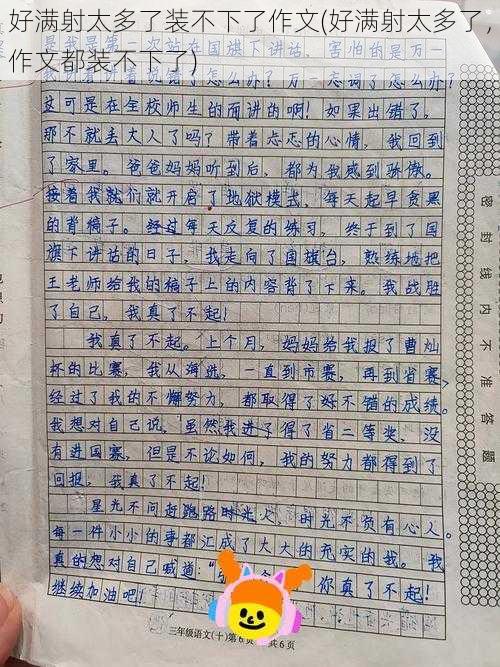 好满射太多了装不下了作文(好满射太多了,
作文都装不下了)
是我是第一次站在国旗下讲话,害怕的是万一
说错了怎么办?万一忘词了怎么办?
这可是在全校师生的面讲的啊!如果出错了。
那不就丢大人了吗?带着忐忑的心情,我回到
了家里。爸爸妈妈听到后,都为我感到骄傲。
接着我就们就开启了地狱模式,每天起早贪黑
的背稿子。经过每天反复的练习,终于到了国
旗下讲话的日子,我走向了国旗台,熟练地把
王老师给我的稿子上的内容背了下来。我战胜
了自己,我真了不起!
我真了不起。上个月,妈妈给我报了曹灿
杯的比赛,我从海选,一直到市赛,再到省赛,
经过了我的不懈努力,都取得了好不错的成绩。
我想对自己说,虽然我进了得了省二等奖,没
有进国赛,但是不论如何,我的努力都得到了
回报,我真了不起!
星光不问赶路时光人,时光不负有心人。
每一件小小的事都汇成了大大的充实的我。我
真的想对自己喊道:“你真了不起!
继续加油吧!
三年级语文(十)第6页 共6页
密封线内不准答题